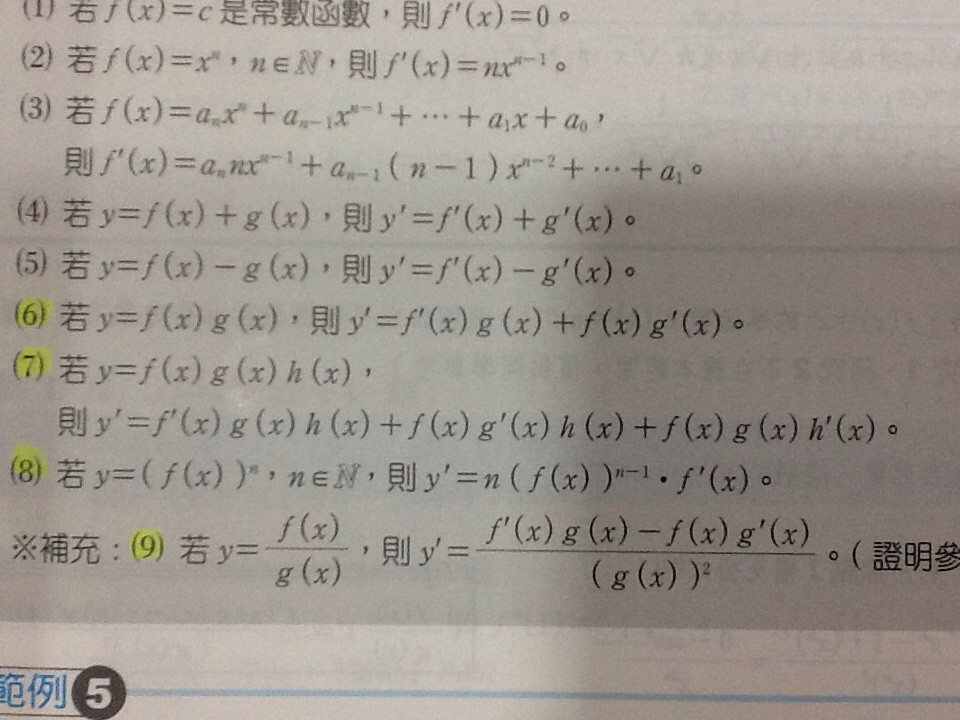 (1) 若 f(x)=c 是常數函數，則 f'(x)=0。
(2) 若 f(x)=xⁿ，n∈ℕ，則 f'(x)=nxⁿ⁻¹。
(3) 若 f(x)=aₙxⁿ+aₙ₋₁xⁿ⁻¹+⋯+a₁x+a₀，
則 f'(x)=aₙnxⁿ⁻¹+aₙ₋₁(n−1)xⁿ⁻²+⋯+a₁。
(4) 若 y=f(x)+g(x)，則 y'=f'(x)+g'(x)。
(5) 若 y=f(x)−g(x)，則 y'=f'(x)−g'(x)。
(6) 若 y=f(x)g(x)，則 y'=f'(x)g(x)+f(x)g'(x)。
(7) 若 y=f(x)g(x)h(x)，
則 y'=f'(x)g(x)h(x)+f(x)g'(x)h(x)+f(x)g(x)h'(x)。
(8) 若 y=(f(x))ⁿ，n∈ℕ，則 y'=n(f(x))ⁿ⁻¹·f'(x)。
※補充：(9) 若 y=f(x)/g(x)，則 y'=(f'(x)g(x)−f(x)g'(x))/(g(x))²。(證明參
範例 5